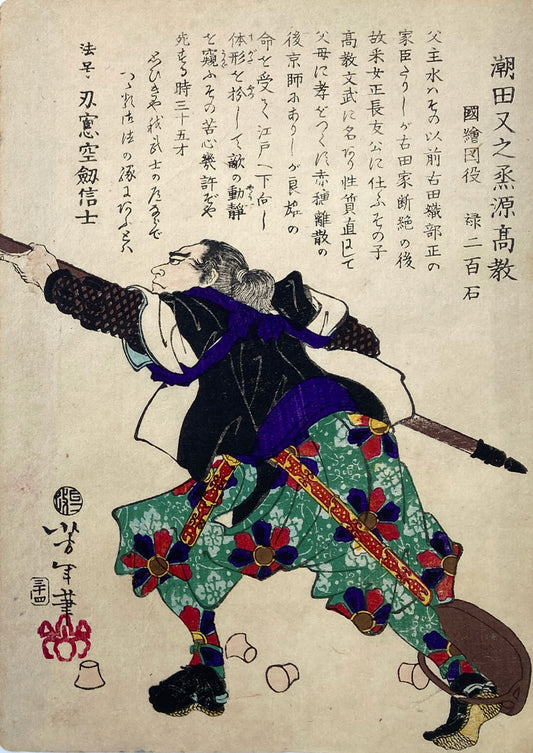 潮田又之烝源髙教
國繪図役 禄二百石
父主水ハその以前古田織部正の
家臣たりしが古田家断絶の後
故采女正長友公に仕ふその子
髙教文武に名あり性質直にして
父母に孝をつくす赤穂離散の
後京師にありしが良雄の
命を受て江戸へ下向し
体形を扮して敵の動静
を窺ふその苦心幾許ぞや
死する時三十五才
法号 刃窓空劔信士
おもひきや我武士の
法の
芳年筆
三十四